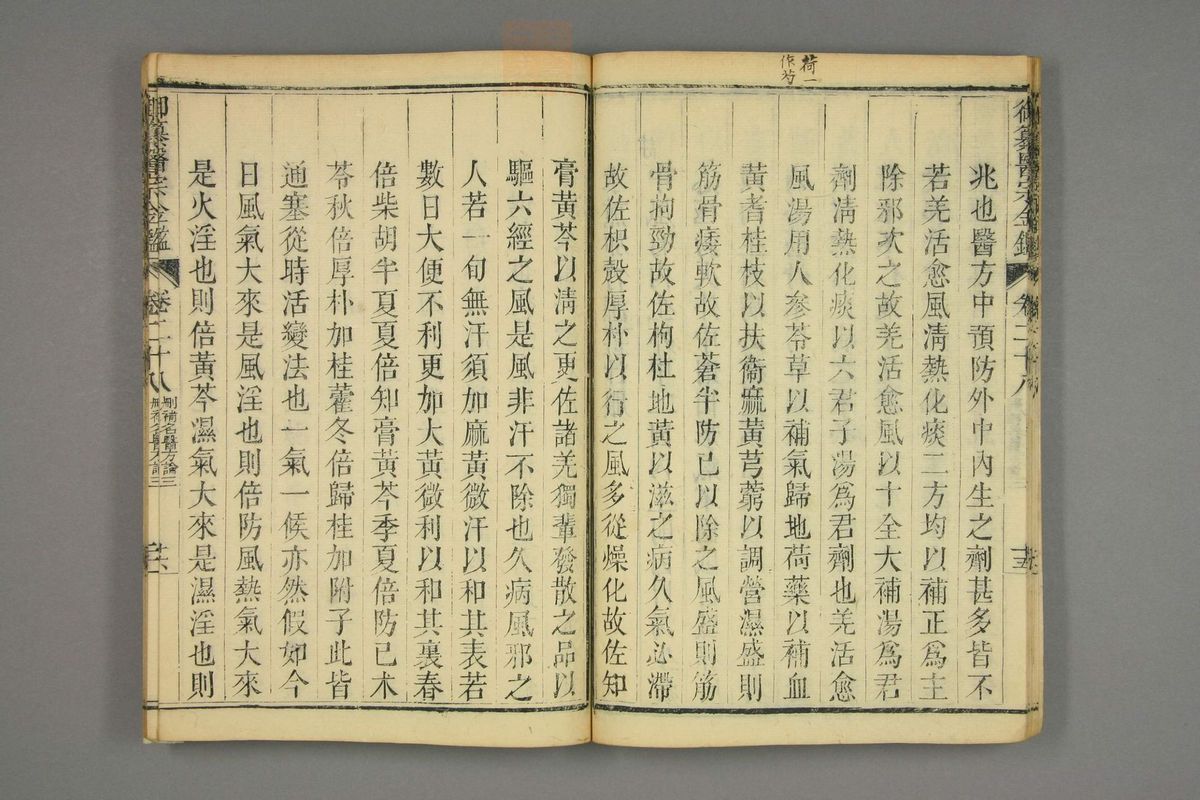 荷一
作芍
御纂醫宗金鑑
卷二十八
兆也醫方中預防外中內生之劑甚多皆不
若羌活愈風淸熱化痰二方均以補正爲主
除邪次之故羌活愈風以十全大補湯爲君
劑淸熱化痰以六君子湯爲君劑也羌活愈
風湯用人參苓草以補氣歸地荷藥以補血
黃耆桂枝以扶衞麻黃芎藭以調營濕盛則
筋骨痿軟故佐蒼半防已以除之風盛則筋
骨拘勁故佐枸杜地黃以滋之病久氣必滯
故佐枳殼厚朴以行之風多從燥化故佐知
膏黃芩以淸之更佐諸羌獨輩發散之品以
驅六經之風是風非汗不除也久病風邪之
人若一旬無汗須加麻黃微汗以和其表若
數日大便不利更加大黃微利以和其裏春
倍柴胡半夏夏倍知膏黃芩季夏倍防已朮
苓秋倍厚朴加桂藿冬倍歸桂加附子此皆
通塞從時活變法也一氣一候亦然假如今
日風氣大來是風淫也則倍防風熱氣大來
是火淫也則倍黃芩濕氣大來是濕淫也則
御纂醫宗金鑑
卷二十八
刪補名醫方論三